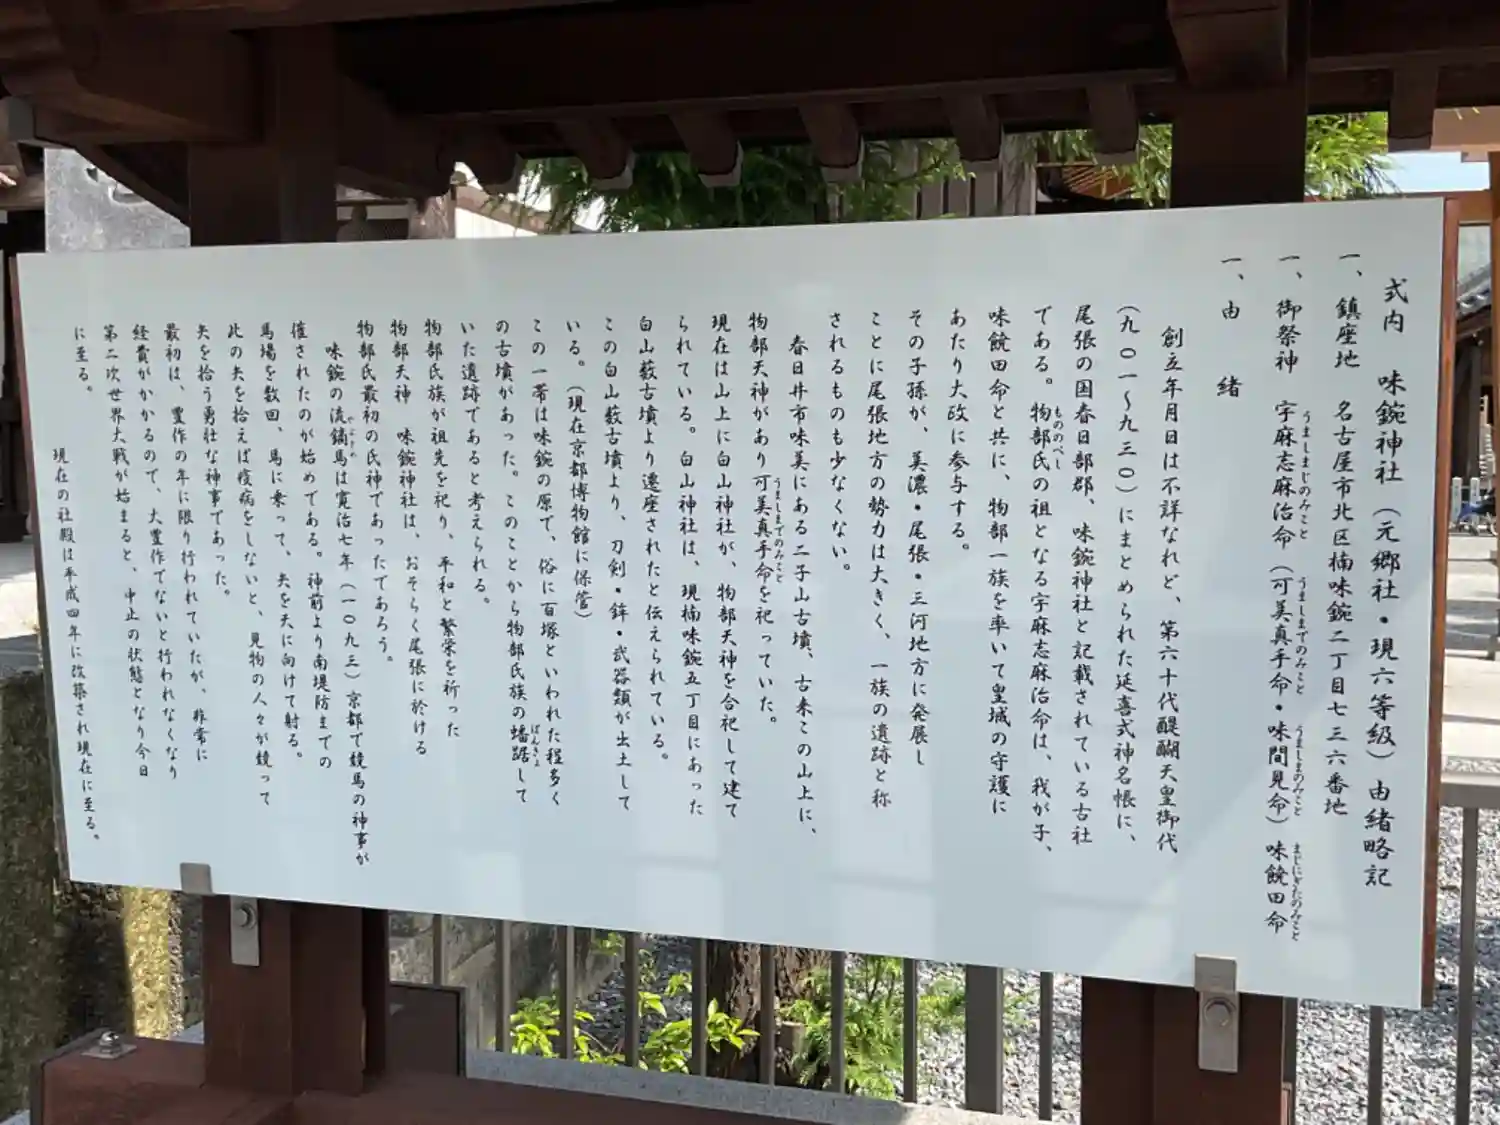 式内 味鋺神社（元郷社・現六等級）由緒略記
一、鎮座地 名古屋市北区楠味鋺二丁目七三六番地
一、御祭神 宇麻志麻治命（可美真手命・味間見命）味饒田命
うましまじのみこと うましまでのみこと うましまのみこと まじにぎたのみこと
一、由 緒
創立年月日は不詳なれど、第六十代醍醐天皇御代
（九〇一～九三〇）にまとめられた延喜式神名帳に、
尾張の国春日部郡、味鋺神社と記載されている古社
である。物部氏の祖となる宇麻志麻治命は、我が子、
もののべし
味饒田命と共に、物部一族を率いて皇城の守護に
あたり大政に参与する。
その子孫が、美濃・尾張・三河地方に発展し
ことに尾張地方の勢力は大きく、一族の遺跡と称
されるものも少なくない。
春日井市味美にある二子山古墳、古来この山上に、
物部天神があり可美真手命を祀っていた。
うましまでのみこと
現在は山上に白山神社が、物部天神を合祀して建て
られている。白山神社は、現楠味鋺五丁目にあった
白山薮古墳より遷座されたと伝えられている。
この白山薮古墳より、刀剣・鉾・武器類が出土して
いる。（現在京都博物館に保管）
この一帯は味鋺の原で、俗に百塚といわれた程多く
の古墳があった。このことから物部氏族の蟠踞して
ばんきょ
いた遺跡であると考えられる。
物部氏族が祖先を祀り、平和と繁栄を祈った
物部天神 味鋺神社は、おそらく尾張に於ける
物部氏最初の氏神であったであろう。
味鋺の流鏑馬は寛治七年（一〇九三）京都で競馬の神事が
やぶさめ
催されたのが始めである。神前より南堤防までの
馬場を数回、馬に乗って、矢を天に向けて射る。
此の矢を拾えば疫病をしないと、見物の人々が競って
矢を拾う勇壮な神事であった。
最初は、豊作の年に限り行われていたが、非常に
経費がかかるので、大豊作でないと行われなくなり
第二次世界大戦が始まると、中止の状態となり今日
に至る。
現在の社殿は平成四年に改築され現在に至る。